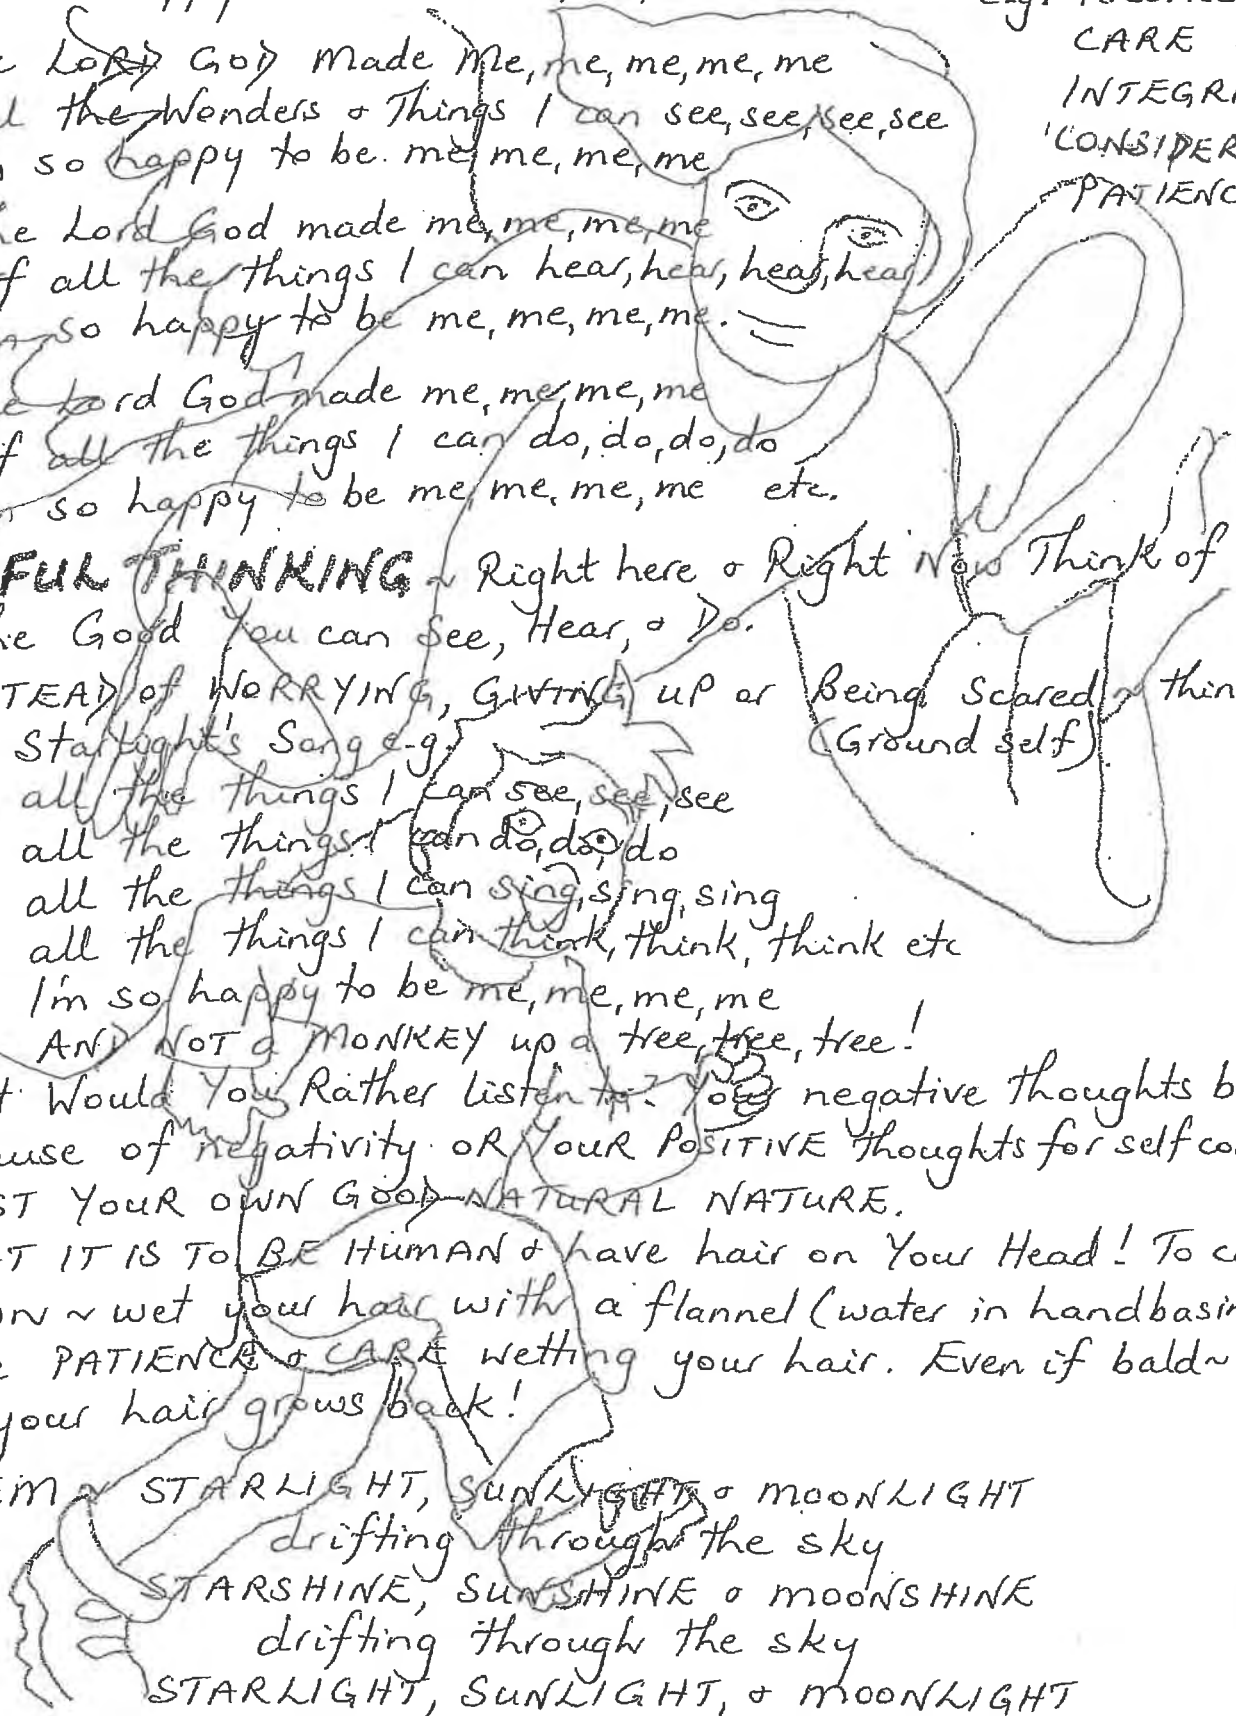 LORD GOD Made Me, me, me, me, me
CARE
the Wonders & Things I can see, see, see, see
INTEGR
so happy to be. me, me, me, me
'CONSIDER
PATIENC
Lord God made me, me, me, me
all the things I can hear, hear, hear, hear
so happy to be me, me, me, me.
Lord God made me, me, me, me
all the things I can do, do, do, do
so happy to be me, me, me, me etc.
FUL THINKING ~ Right here & Right Now Think of
Good You can See, Hear, & Do.
TEAD of WORRYING, GIVING UP or Being Scared ~ thin
Starlight's Song e.g. (Ground self)
all the things I can see, see, see
all the things I can do, do, do
all the things I can sing, sing, sing
all the things I can think, think, think etc
I'm so happy to be me, me, me, me
AND NOT a MONKEY up a tree, tree, tree!
t Would You Rather listen to? Your negative thoughts b
use of negativity OR YOUR POSITIVE thoughts for self co
ST YOUR OWN GOOD NATURAL NATURE.
T IT IS TO BE HUMAN & have hair on Your Head! To c
ON ~ wet your hair with a flannel (water in handbasin
PATIENCE & CARE wetting your hair. Even if bald ~
your hair grows back!
EM ~ STARLIGHT, SUNLIGHT & MOONLIGHT
drifting through the sky
STARSHINE, SUNSHINE & MOONSHINE
drifting through the sky
STARLIGHT, SUNLIGHT, & MOONLIGHT